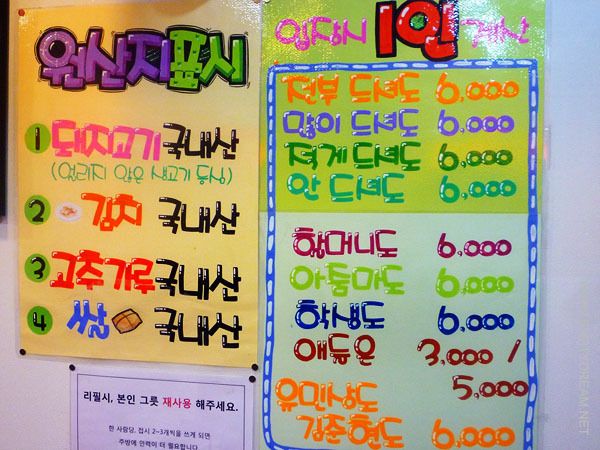 원산지표시
1 돼지고기 국내산
(얼리지 않은 생고기 등심)
2 김치 국내산
3 고추가루 국내산
4 쌀 국내산
리필시, 본인 그릇 재사용 해주세요.
한 사람당, 접시 2~3개씩을 쓰게 되면
주방에 인력이 더 필요합니다
입장시 1인 계산
전부 드셔도 6,000
많이 드셔도 6,000
적게 드셔도 6,000
안 드셔도 6,000
할머니도 6,000
아줌마도 6,000
학생도 6,000
애들은 3,000 /
5,000
유민상도
김준현도 6,000